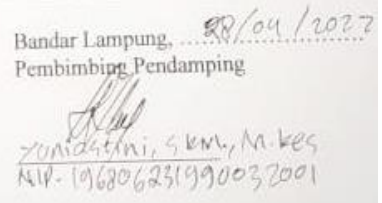 Bandar Lampung, 28/04/2022
Pembimbing Pendamping
Yuniastini, SKM, M.Kes
NIP. 196806231990032001